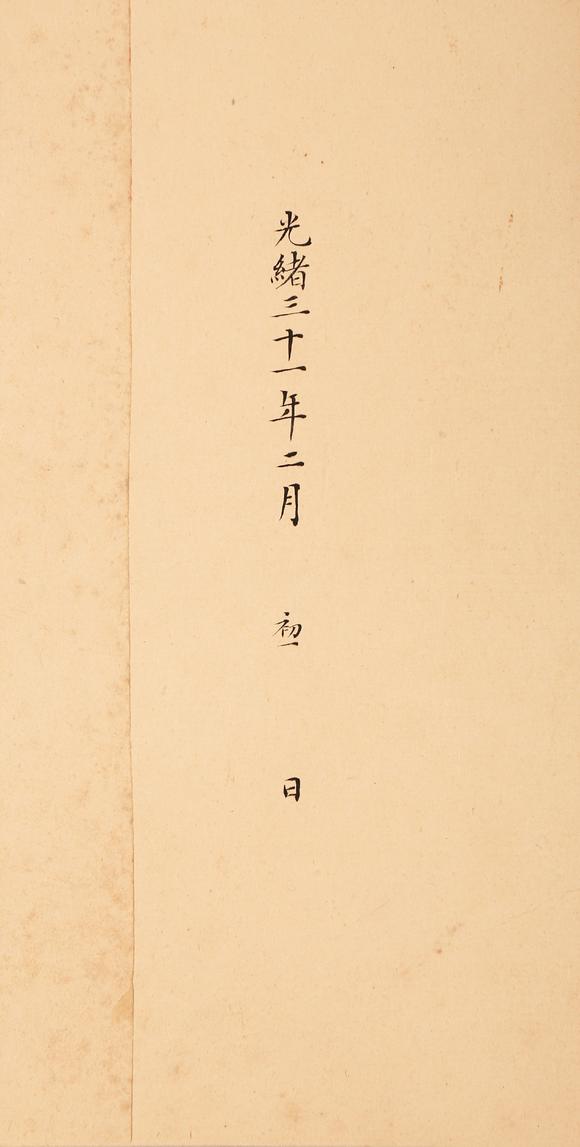 光緒三十一年二月初一日